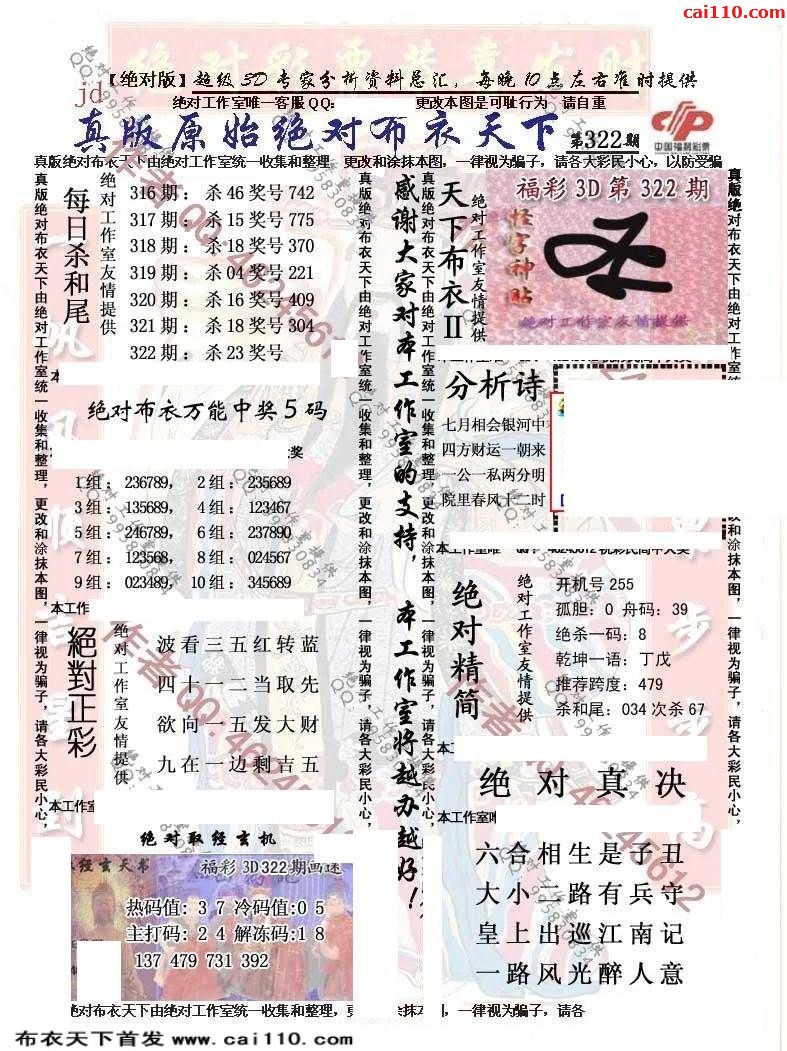 cai110.com
【绝对版】超级3D专家分析资料总汇，每晚10点左右准时提供
jd
绝对工作室唯一客服QQ： 更改本图是可耻行为 请自重
真版原始绝对布衣天下 第322期
中国福利彩票
真版绝对布衣天下由绝对工作室统一收集和整理，更改和涂抹本图，一律视为骗子，请各大彩民小心，以防受骗
每日杀和尾
绝对工作室友情提供
316期：杀46奖号742
317期：杀15奖号775
318期：杀18奖号370
319期：杀04奖号221
320期：杀16奖号409
321期：杀18奖号304
322期：杀23奖号
绝对布衣万能中奖5码
1组：236789，2组：235689
3组：135689，4组：123467
5组：246789，6组：237890
7组：123568，8组：024567
9组：023489，10组：345689
本工作
絕對正彩
绝对工作室友情提供
波看三五红转蓝
四十一二当取先
欲向一五发大财
九在一边剩吉五
本工作室
绝对取经玄机
经玄天书
福彩3D322期画迷
热码值：37冷码值：05
主打码：24解冻码：18
137 479 731 392
感谢大家对本工作室的支持，本工作室将越办越好！
天下布衣II
绝对工作室友情提供
福彩3D第322期
怪字神贴
绝对工作室友情提供
分析诗
七月相会银河中
四方财运一朝来
一公一私两分明
院里春风十二时
绝对精简
绝对工作室友情提供
开机号255
孤胆：0 舟码：39
绝杀一码：8
乾坤一语：丁戊
推荐跨度：479
杀和尾：034次杀67
绝对真决
本工作室唯
六合相生是子丑
大小二路有兵守
皇上出巡江南记
一路风光醉人意
真版绝对布衣天下由绝对工作室统一收集和整理，更改和涂抹本图，一律视为骗子，请各大彩民小心，
绝对布衣天下由绝对工作室统一收集和整理，更
涂抹本图，一律视为骗子，请各
作者QQ:46245612
布衣天下首发 www.cai110.com